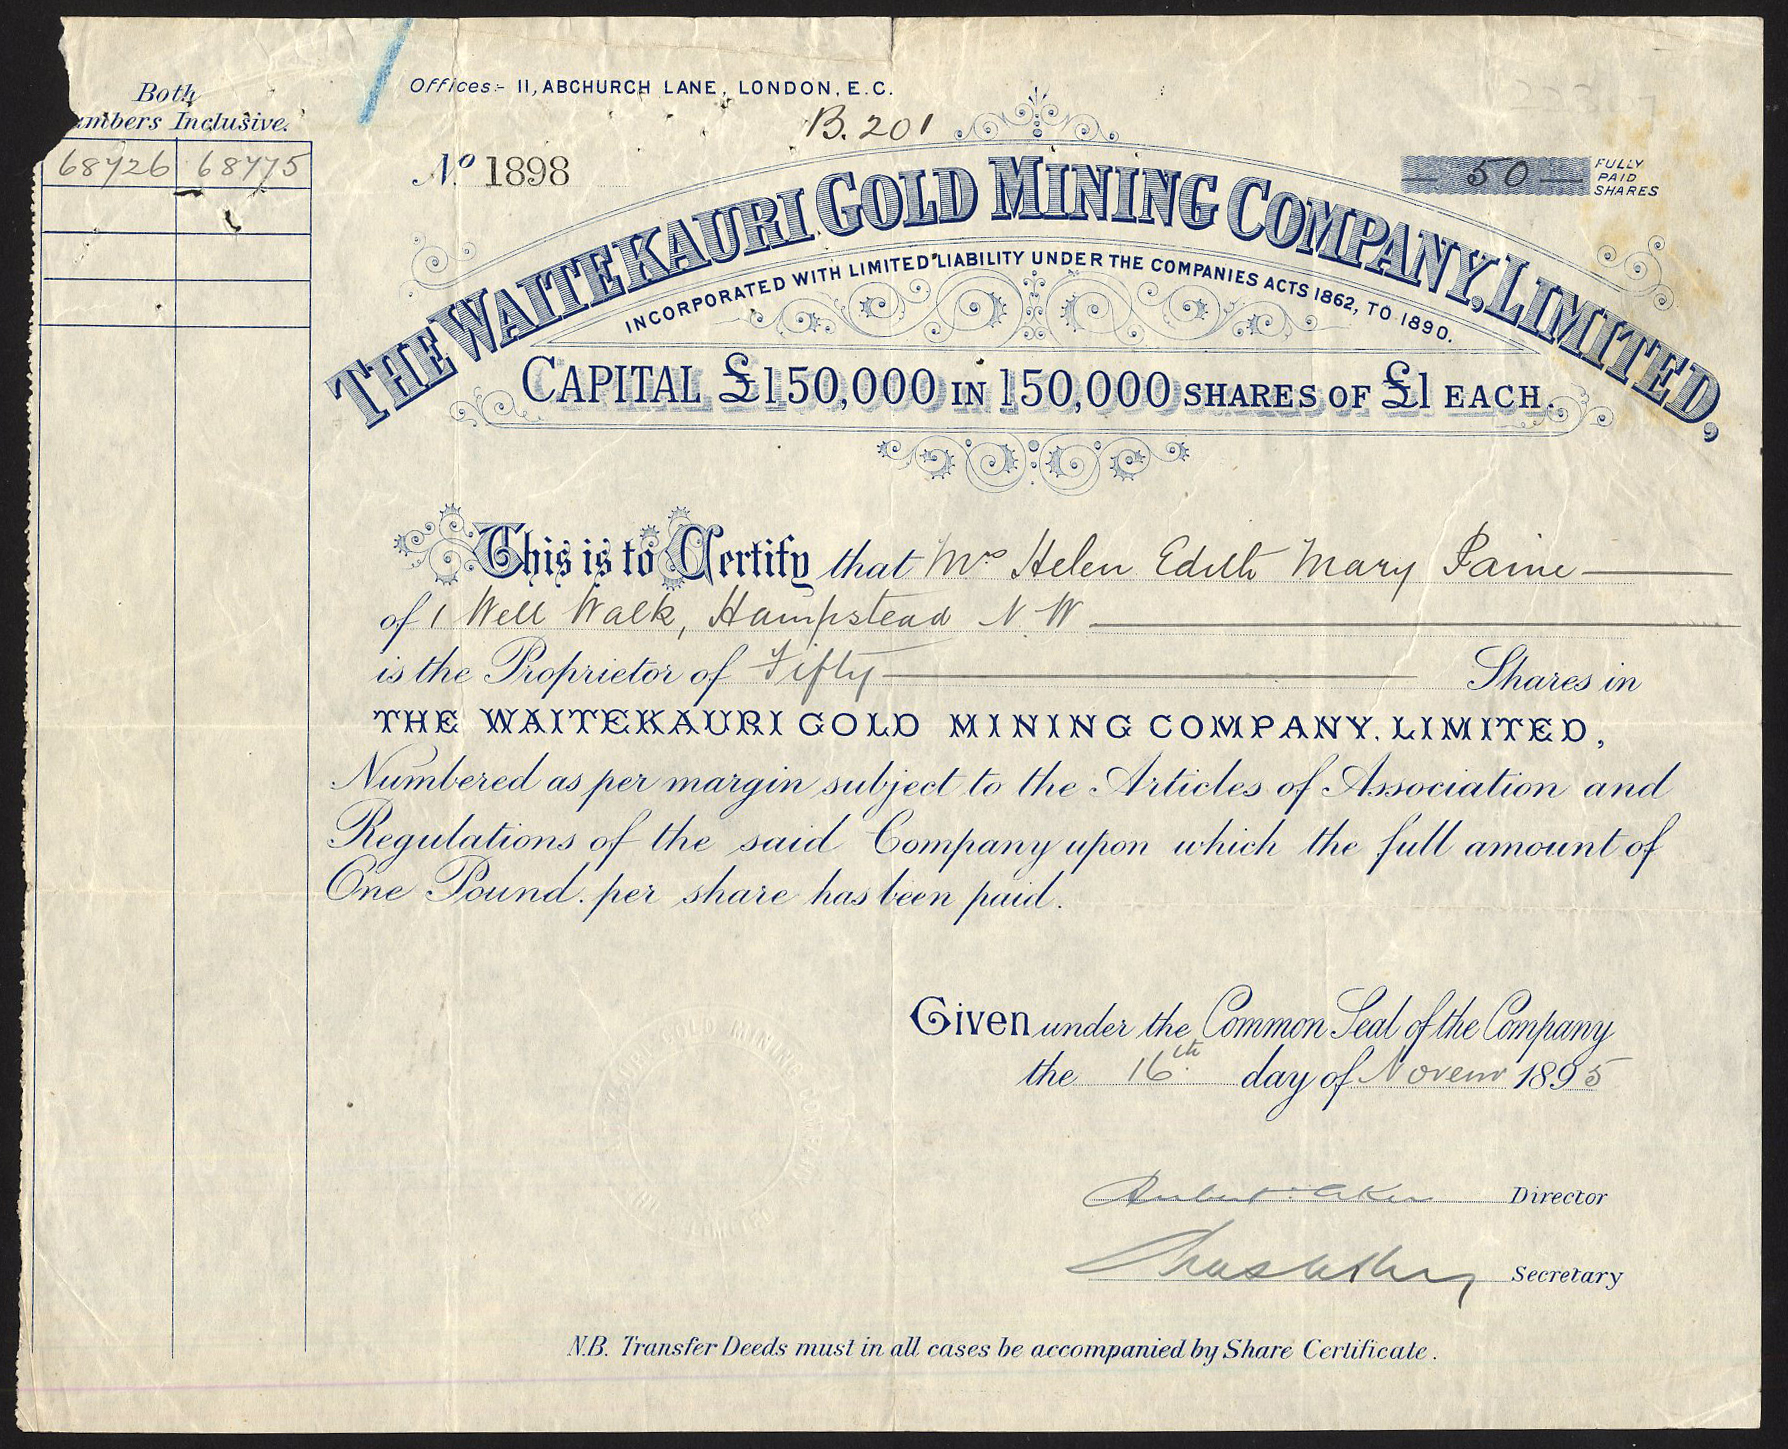 Both
Numbers Inclusive.
68726 68775
Offices:- 11, ABCHURCH LANE, LONDON, E.C.
B. 201
No 1898
50
FULLY
PAID
SHARES
THE WAITEKAURI GOLD MINING COMPANY, LIMITED,
INCORPORATED WITH LIMITED LIABILITY UNDER THE COMPANIES ACTS 1862, TO 1890.
CAPITAL £150,000 IN 150,000 SHARES OF £1 EACH.
This is to Certify that Mrs Helen Edith Mary Paine
of 1 Well Walk, Hampstead N.W
is the Proprietor of Fifty Shares in
THE WAITEKAURI GOLD MINING COMPANY, LIMITED,
Numbered as per margin subject to the Articles of Association and
Regulations of the said Company upon which the full amount of
One Pound. per share has been paid.
Given under the Common Seal of the Company
the 16th day of Novemr 1895
Director
Secretary
GOLD MINING COMPANY
LIMITED
N.B. Transfer Deeds must in all cases be accompanied by Share Certificate.